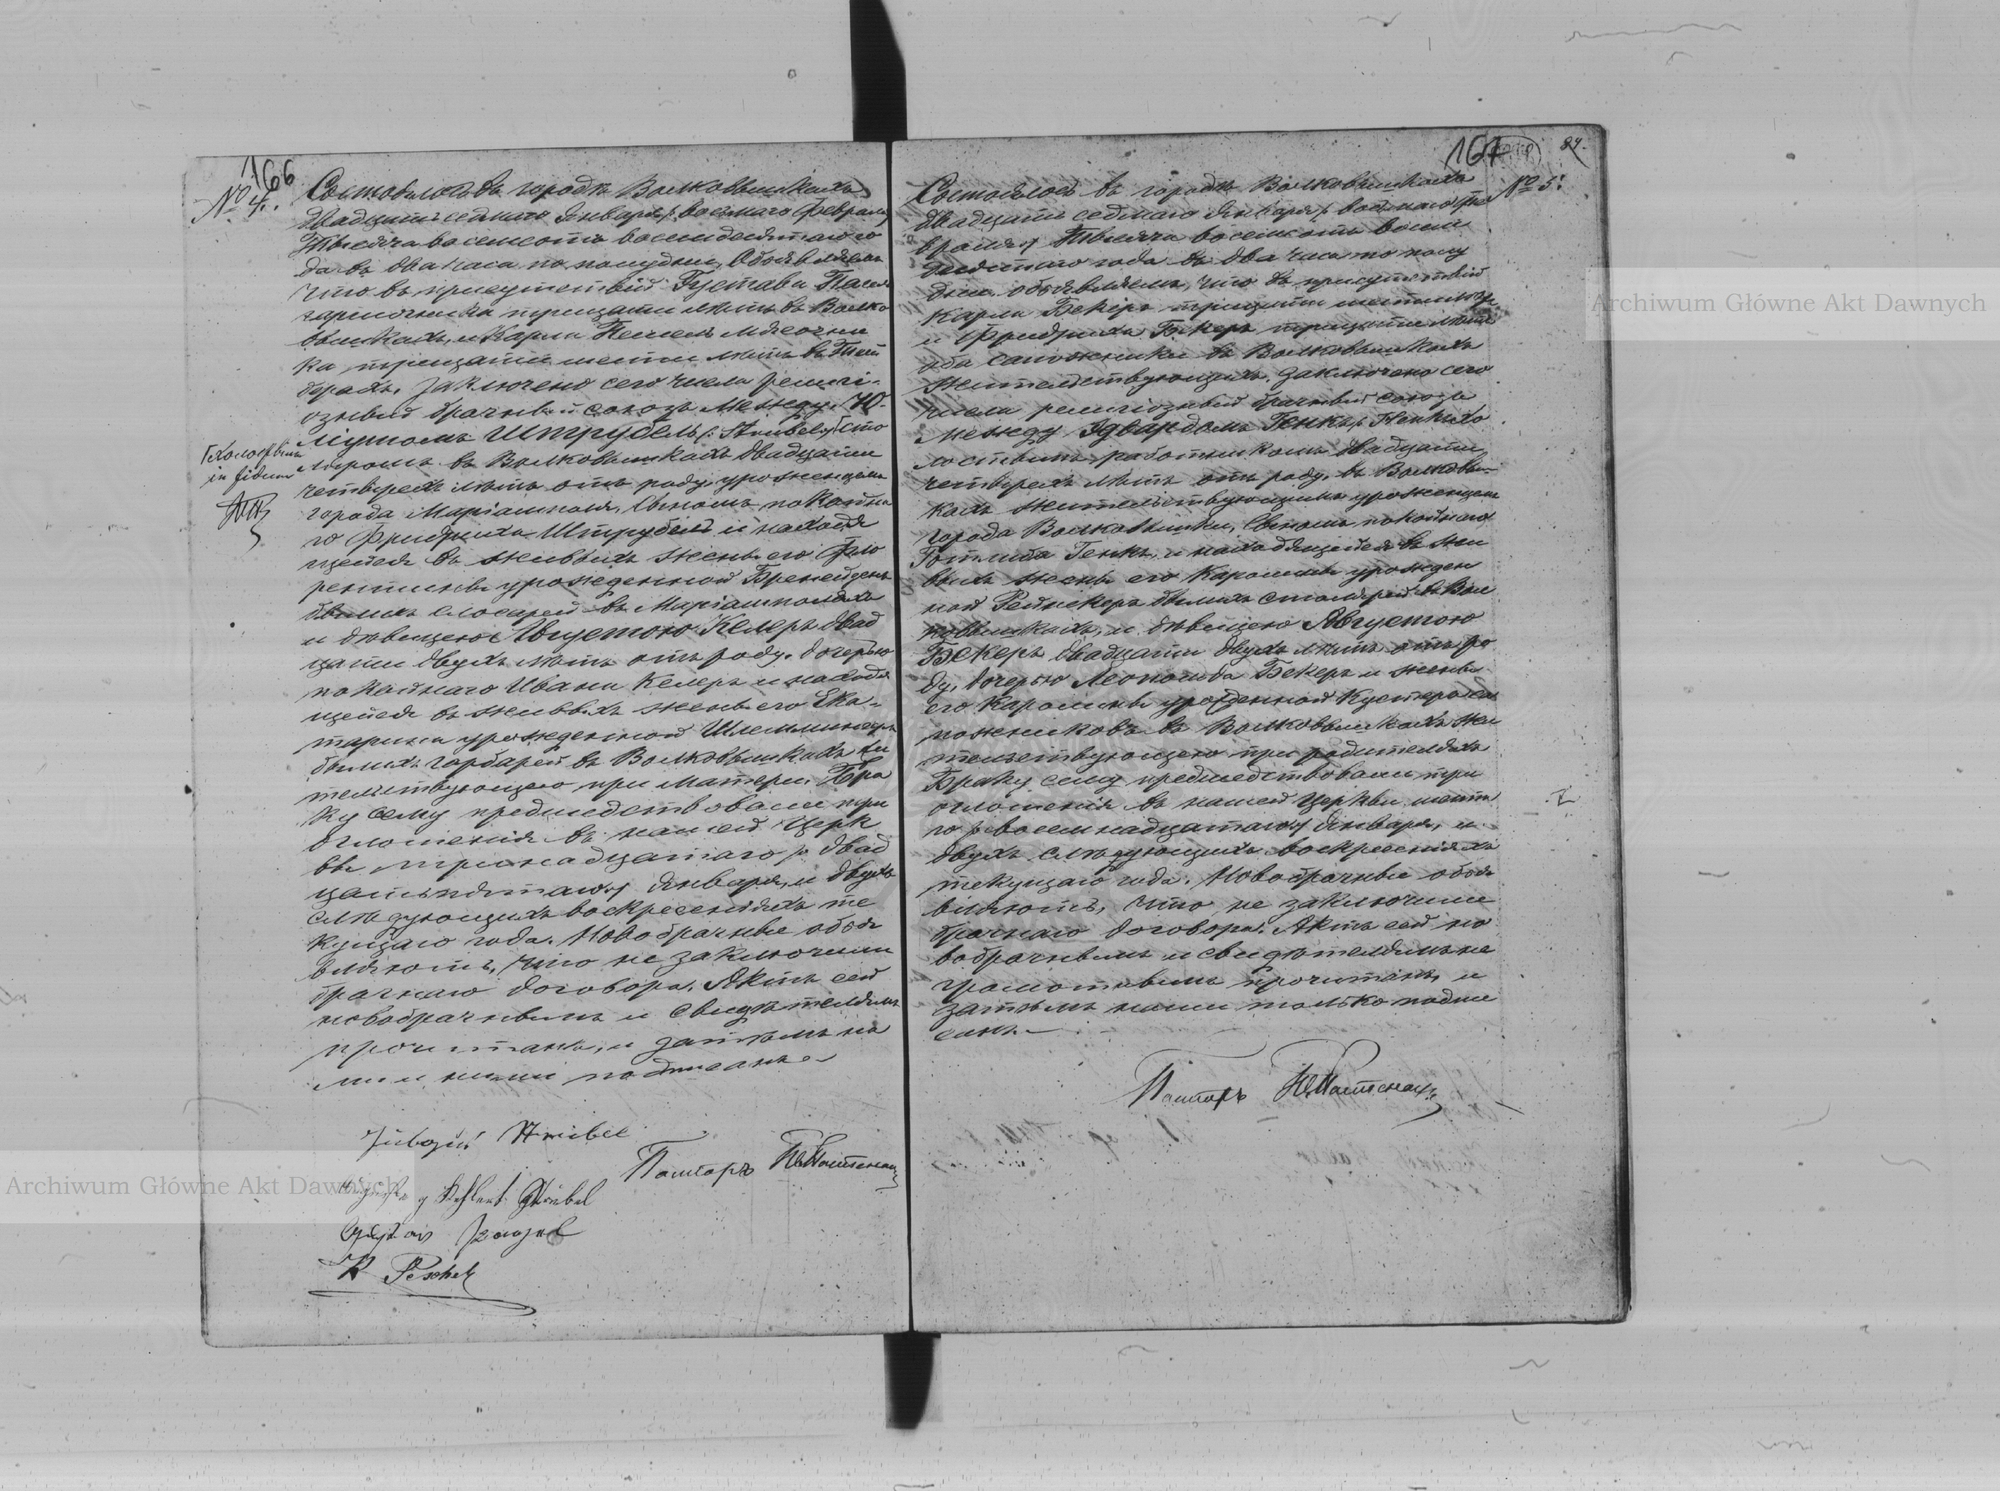 166
№ 4.
Состоялось въ городѣ Волковышкахъ
двадцать седмаго Января /: восьмаго Февраля :/
тысяча восемсотъ восемдесятаго го
да въ два часа по полудни. Объявляемъ
что въ присутствіи Густава
тридцати лѣтъ въ Волко
вышкахъ, и Карла Пешель
ка тридцати шести лѣтъ въ
заключено сего числа религі-
озный брачный союзъ между Ю-
ліусомъ Штрубель /: Strubel :/ сто
ляромъ въ Волковышкахъ двадцати
четырехъ лѣтъ отъ роду, урожденцемъ
города Маріамполя, сыномъ покойна
го Фридриха Штрубель и находя
щейся въ живыхъ жены его Фло
рентины урожденной
бывшихъ слесарей въ Маріамполѣ
и дѣвицею Августою Келеръ двад
цати двухъ лѣтъ отъ роду, дочерью
покойнаго Ивана Келеръ и находя
щейся въ живыхъ жены его Ека-
тарины урожденной
бывшихъ гарбарей въ Волковышкахъ жи
тельствующею при матери. Бра
ку сему предшедствовали три
оглошенія въ нашей Церк
ви тринадцатаго /: двад
цатьпятаго :/ Января, и двухъ
слѣдующихъ воскресеніяхъ те
кущаго года. Новобрачные объя
вляютъ, что не заключили
брачнаго договора. Актъ сей
новобрачнымъ и свидѣтелямъ
прочитанъ, и затѣмъ на
ми и ними подписанъ.
холостымъ
Strubel
Пасторъ
Strubel
K Peschel
167
84.
№ 5.
Состоялось въ городѣ Волковышкахъ
двадцати седмаго Января /: восьмаго Фе
враля :/ тысяча восемсотъ восем
десятаго года въ два часа по полу
дни. Объявляемъ, что въ присутствіи
Карла Бекеръ тридцати шести лѣтъ
и Фридриха Бекеръ тридцати лѣтъ
оба сапожники въ Волковышкахъ
жительствующихъ, заключено сего
числа религіозный брачный союзъ
между Эдвардомъ Генкъ /: Henk :/ хо
лостымъ работникомъ двадцати
четырехъ лѣтъ отъ роду, въ Волковыш
кахъ жительствующимъ урожденцемъ
города Волковышки, сыномъ покойнаго
Готлиба Генкъ, и находящейся въ жи
выхъ жены его Каролины урожден
ной бывшихъ столярей въ Вол
ковышкахъ, и дѣвицею Августою
Бекеръ двадцати двухъ лѣтъ отъ ро
ду, дочерью Леопольда Бекеръ и жены
его Каролины урожденной са
пожниковъ въ Волковышкахъ жи
тельствующею при родителяхъ
Браку сему предшедствовали три
оглошенія въ нашей Церкви шеста
го /: восемнадцатаго :/ Января, и
двухъ слѣдующихъ воскресеніяхъ
текущаго года. Новобрачные объя
вляютъ, что не заключили
брачнаго договора. Актъ сей но
вобрачнымъ и свидѣтелямъ не
грамотнымъ прочитанъ, и
затѣмъ нами только подпи
санъ.
Пасторъ
Archiwum Główne Akt Dawnych
Archiwum Główne Akt Dawnych